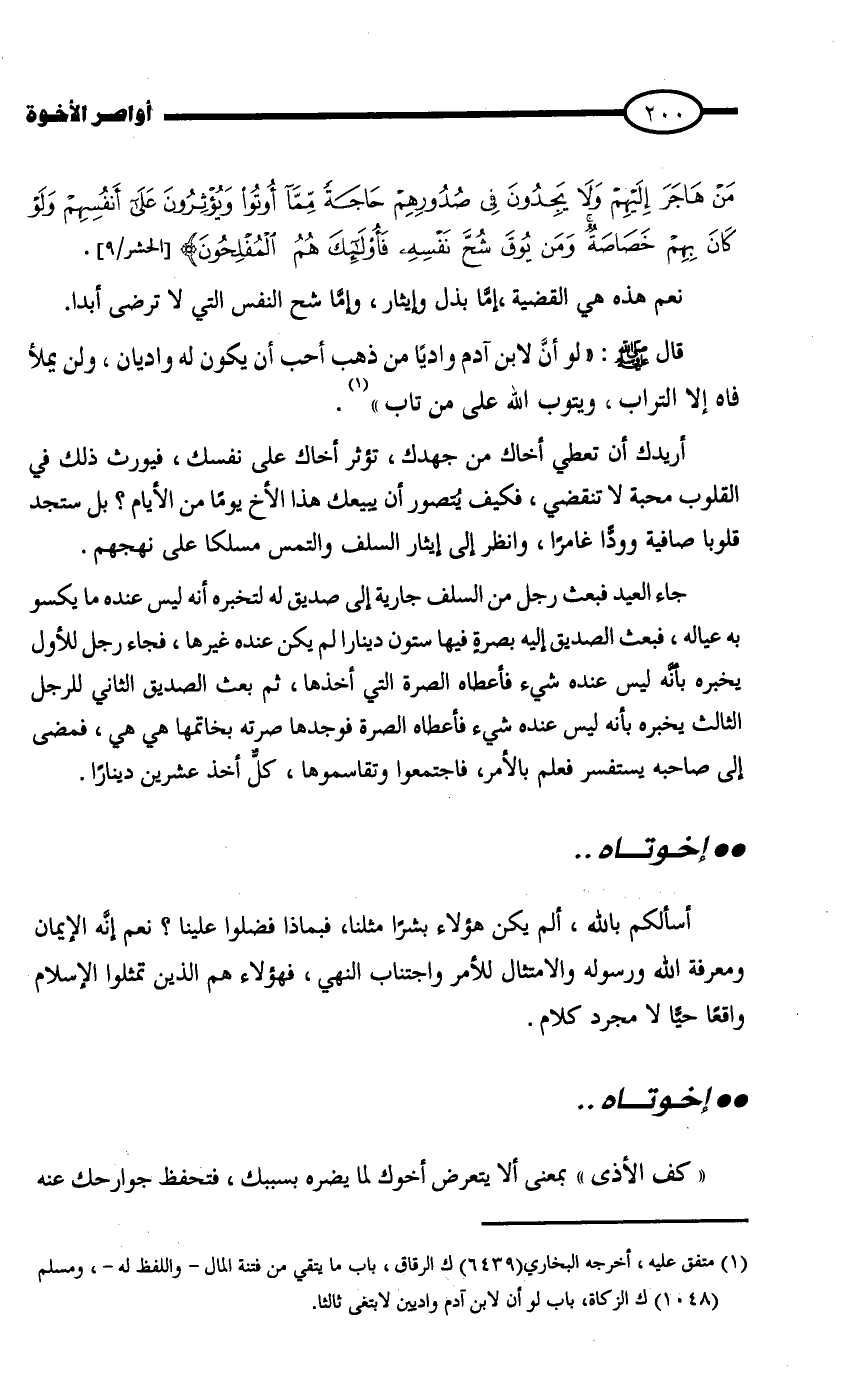 ٢٠٠ أواصر الأخوة
مَنْ هَاجَرَ إِلَيْهِمْ وَلَا يَجِدُونَ فِى صُدُورِهِمْ حَاجَةً مِّمَّآ أُوتُوا۟ وَيُؤْثِرُونَ عَلَىٰٓ أَنفُسِهِمْ وَلَوْ
كَانَ بِهِمْ خَصَاصَةٌ ۚ وَمَن يُوقَ شُحَّ نَفْسِهِۦ فَأُو۟لَـٰٓئِكَ هُمُ ٱلْمُفْلِحُونَ﴾ [الحشر/٩] .
نعم هذه هي القضية ،إمَّا بذل وإيثار ، وإمَّا شح النفس التي لا ترضى أبدا.
قال ﷺ : « لو أنَّ لابن آدم واديًا من ذهب أحب أن يكون له واديان ، ولن يملأ
فاه إلا التراب ، ويتوب الله على من تاب »(١) .
أريدك أن تعطي أخاك من جهدك ، تؤثر أخاك على نفسك ، فيورث ذلك في
القلوب محبة لا تنقضي ، فكيف يُتصور أن يبيعك هذا الأخ يومًا من الأيام ؟ بل ستجد
قلوبا صافية وودًّا غامرًا ، وانظر إلى إيثار السلف والتمس مسلكا على نهجهم .
جاء العيد فبعث رجل من السلف جارية إلى صديق له لتخبره أنه ليس عنده ما يكسو
به عياله ، فبعث الصديق إليه بصرةٍ فيها ستون دينارا لم يكن عنده غيرها ، فجاء رجل للأول
يخبره بأنَّه ليس عنده شيء فأعطاه الصرة التي أخذها ، ثم بعث الصديق الثاني للرجل
الثالث يخبره بأنه ليس عنده شيء فأعطاه الصرة فوجدها صرته بخاتمها هي هي ، فمضى
إلى صاحبه يستفسر فعلم بالأمر، فاجتمعوا وتقاسموها ، كلٌّ أخذ عشرين دينارًا .
●● إخـوتـــاه ..
أسألكم بالله ، ألم يكن هؤلاء بشرًا مثلنا، فبماذا فضلوا علينا ؟ نعم إنَّه الإيمان
ومعرفة الله ورسوله والامتثال للأمر واجتناب النهي ، فهؤلاء هم الذين تمثلوا الإسلام
واقعًا حيًّا لا مجرد كلام .
●● إخـوتـــاه ..
« كف الأذى » بمعنى ألا يتعرض أخوك لما يضره بسببك ، فتحفظ جوارحك عنه
(١) متفق عليه ، أخرجه البخاري(٦٤٣٩) ك الرقاق ، باب ما يتقي من فتنة المال - واللفظ له - ، ومسلم
(١٠٤٨) ك الزكاة، باب لو أن لابن آدم واديين لابتغى ثالثا.